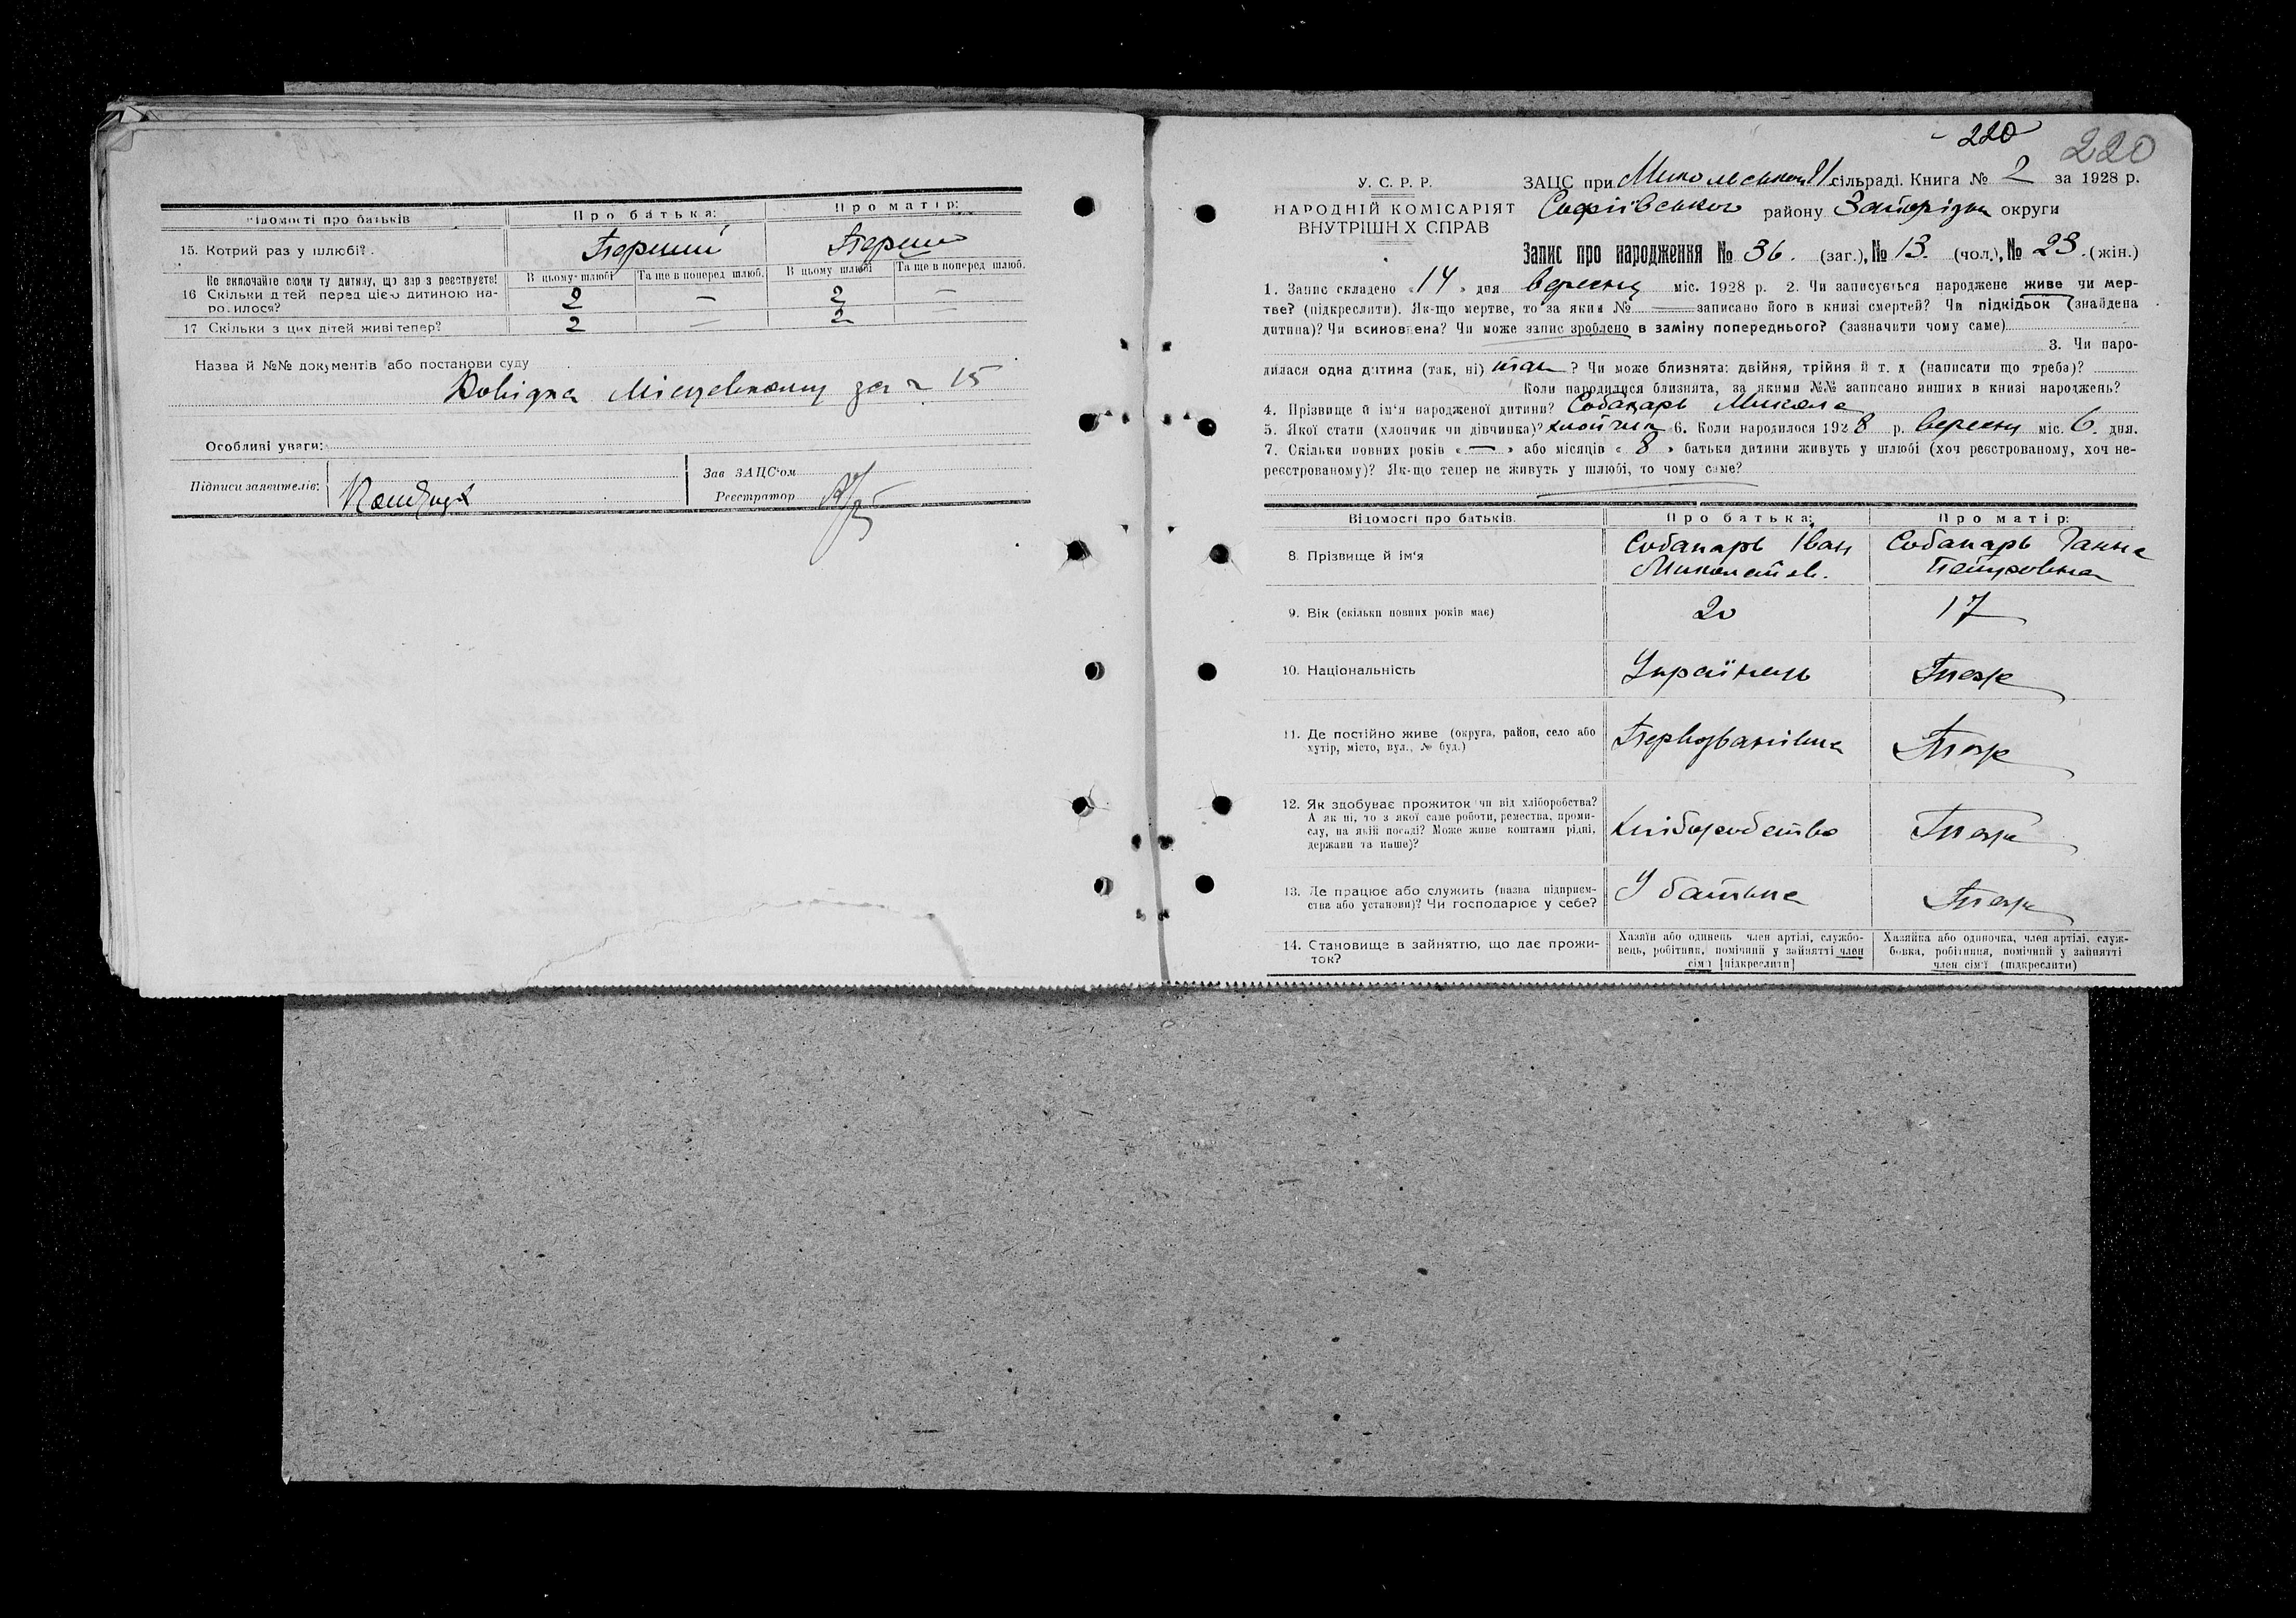 Відомості про батьків
Про батька:
Про матір:
15. Котрий раз у шлюбі?
Перший
Перши
Не включайте сюди ту дитину, що зараз реєструєте!
В цьому шлюбі
Та ще в поперед. шлюб.
В цьому шлюбі
Та ще в поперед. шлюб.
16 Скільки дітей перед цією дитиною на-
родилося?
2
—
2
—
17 Скільки з цих дітей живі тепер?
2
—
2
—
Назва й №№ документів або постанови суду
Довідка за 15
Особливі уваги:
Підписи заявителів:
Зав ЗАЦС'ом
Реєстратор
- 220
220
У. С. Р. Р.
НАРОДНІЙ КОМІСАРІЯТ
ВНУТРІШНІХ СПРАВ
ЗАЦС при Микольський сільраді. Книга № 2 за 1928 р.
Софіївського району Запорізьк округи
Запис про народження № 36. (заг.), № 13. (чол.), № 23. (жін.)
1. Запис складено « 14 » дня вересня міс. 1928 р. 2. Чи записується народжене живе чи мер-
тве? (підкреслити). Як-що мертве, то за яким № — записано його в книзі смертей? Чи підкідьок (знайдена
дитина)? Чи всиновлена? Чи може запис зроблено в заміну попереднього? (зазначити чому саме)
3. Чи наро-
дилася одна дитина (так, ні) так ? Чи може близнята: двійня, трійня й т. д (написати що треба)?
Коли народилися близнята, за якими №№ записано инших в книзі народжень?
4. Прізвище й ім'я народженої дитини? Собакарь Микола
5. Якої стати (хлопчик чи дівчинка)? хлопчик 6. Коли народилося 1928 р. вересня міс. 6. дня.
7. Скільки повних років « — » або місяців « 8 » батьки дитини живуть у шлюбі (хоч реєстрованому, хоч не-
реєстрованому)? Як-що тепер не живуть у шлюбі, то чому саме?
Відомості про батьків.
Про батька:
Про матір:
8. Прізвище й ім'я
Собакарь Іван
Миколаїов.
Собакарь Ганна
Петровна
9. Вік (скільки повних років має)
20
17
10. Національність
Українець
Теж
11. Де постійно живе (округа, район, село або
хутір, місто, вул., № буд.)
Первозванівка
Теж
12. Як здобуває прожиток чи від хліборобства?
А як ні, то з якої саме роботи, ремества, проми-
слу, на якій посаді? Може живе коштами рідні,
держави та инше)?
Хліборобство
Теж
13. Де працює або служить (назва підприєм-
ства або установи)? Чи господарює у себе?
У батька
Теж
14. Становище в зайняттю, що дає прожи-
ток?
Хазяїн або одинець член артілі, службо-
вець, робітник, помічний у зайнятті член
сім'ї [підкреслити]
Хазяйка або одиночка, член артілі, служ-
бовка, робітниця, помічний у зайнятті
член сім'ї (підкреслити)